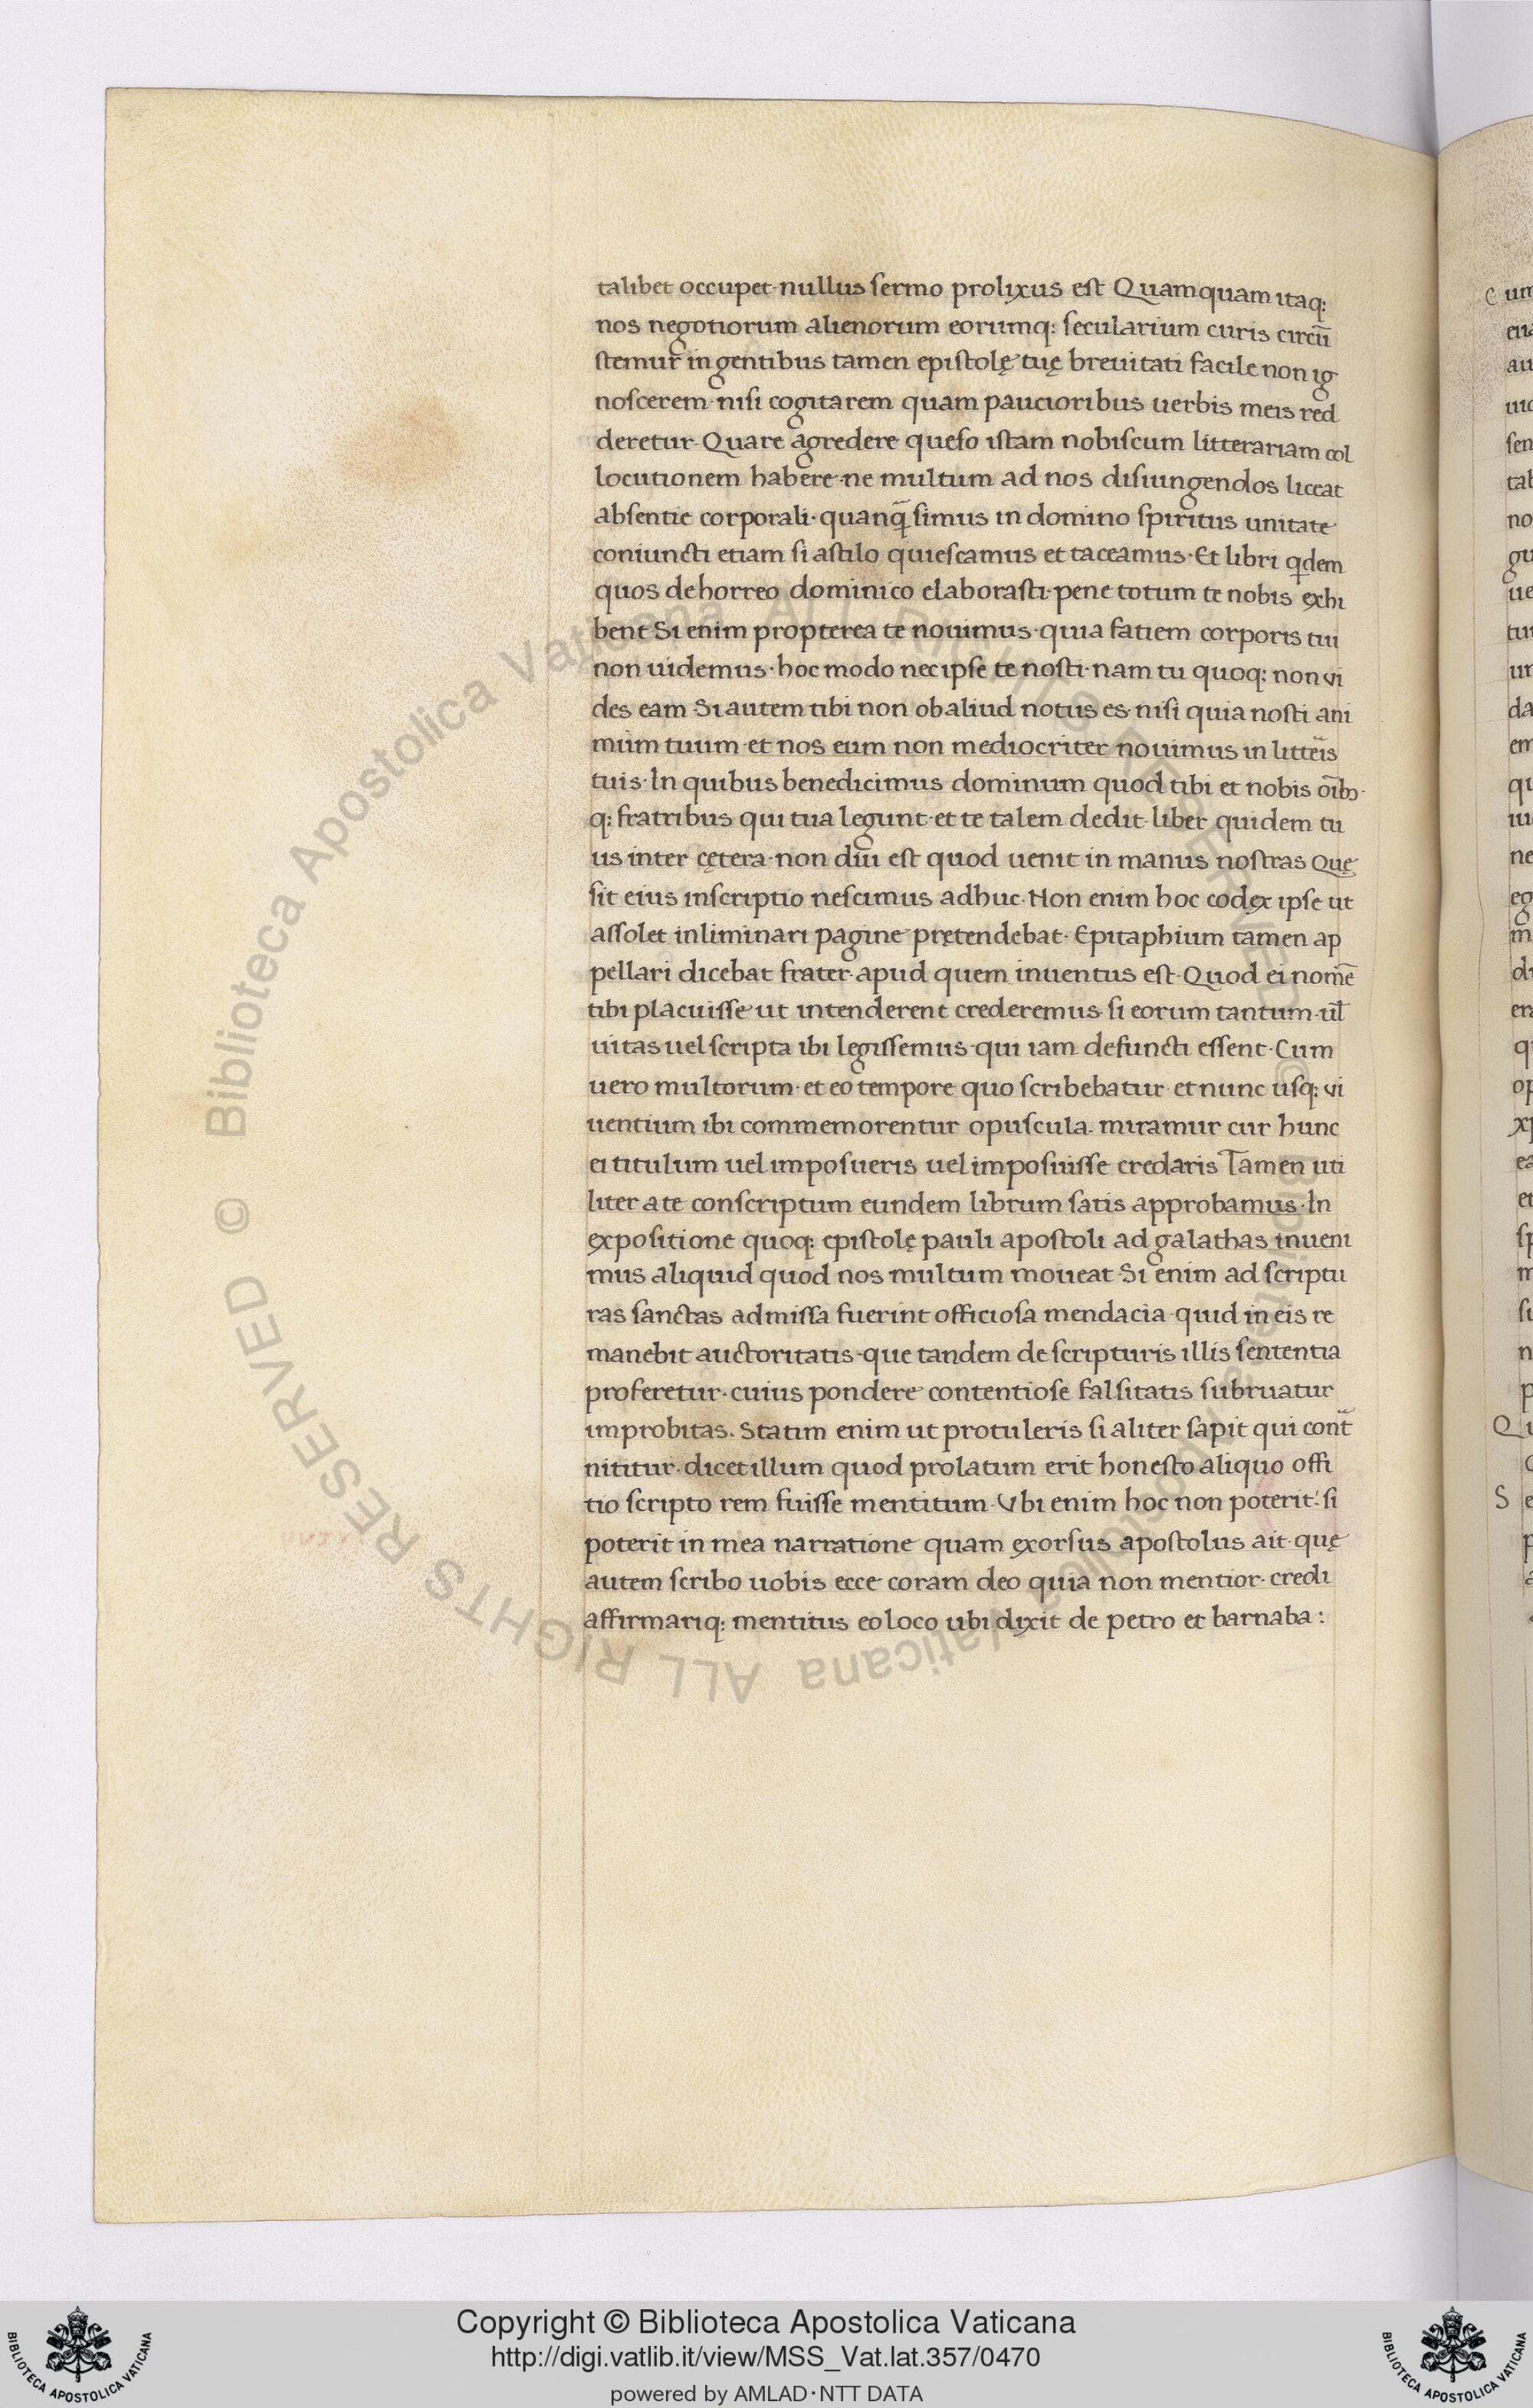 talibet occupet· nullus sermo prolixus est Quamquam itaq:
nos negotiorum alienorum eorumq: secularium curis circū
stemur ingentibus tamen epistolę tuę breuitati facile non ig
noscerem· nisi cogitarem quam paucioribus uerbis meis red
deretur· Quare agredere queso istam nobiscum litterariam col
locutionem habere· ne multum ad nos disiungendos liceat
absentie corporali· quanq̄ simus in domino spiritus unitate
coniuncti etiam si astilo quiescamus et taceamus· Et libri qdem
quos dehorreo dominico elaborasti· pene totum te nobis exhi
bent Si enim propterea te nouimus· quia fatiem corporis tui
non uidemus· hoc modo nec ipse te nosti· nam tu quoq: non vi
des eam Si autem tibi non ob aliud notus es· nisi quia nosti ani
mum tuum· et nos eum non mediocriter nouimus in litteīs
tuis· In quibus benedicimus dominum quod tibi et nobis oībꝫ·
q: fratribus qui tua legunt· et te talem dedit· liber quidem tu
us inter cętera· non diu est quod uenit in manus nostras Quę
sit eius inscriptio nescimus adhuc· Non enim hoc codex ipse ut
assolet inliminari pagine prętendebat· Epitaphium tamen ap
pellari dicebat frater· apud quem inuentus est· Quod ei nomē
tibi placuisse ut intenderent crederemus· si eorum tantum· ul̄
uitas uel scripta ibi legissemus· qui iam defuncti essent· Cum
uero multorum· et eo tempore quo scribebatur· et nunc usq: vi
uentium ibi commemorentur opuscula· miramur cur hunc
ei titulum uel imposueris uel imposuisse credaris Tamen uti
liter a te conscriptum eundem librum satis approbamus· In
expositione quoq: epistolę pauli apostoli ad galathas inueni
mus aliquid quod nos multum moueat Si enim ad scriptu
ras sanctas admissa fuerint officiosa mendacia· quid in eis re
manebit auctoritatis· que tandem de scripturis illis sententia
proferetur· cuius pondere contentiose falsitatis subruatur
improbitas. Statim enim ut protuleris si aliter sapit qui cont̄
nititur· dicet illum quod prolatum erit honesto aliquo offi
tio scripto rem fuisse mentitum· Vbi enim hoc non poterit: si
poterit in mea narratione quam exorsus apostolus ait· quę
autem scribo uobis ecce coram deo quia non mentior· credi
affirmariq: mentitus eo loco ubi dixit de petro et barnaba:
© Biblioteca Apostolica Vaticana ALL RIGHTS RESERVED
Copyright © Biblioteca Apostolica Vaticana
http://digi.vatlib.it/view/MSS_Vat.lat.357/0470
powered by AMLAD·NTT DATA
BIBLIOTECA APOSTOLICA VATICANA
BIBLIOTECA APOSTOLICA VATICANA